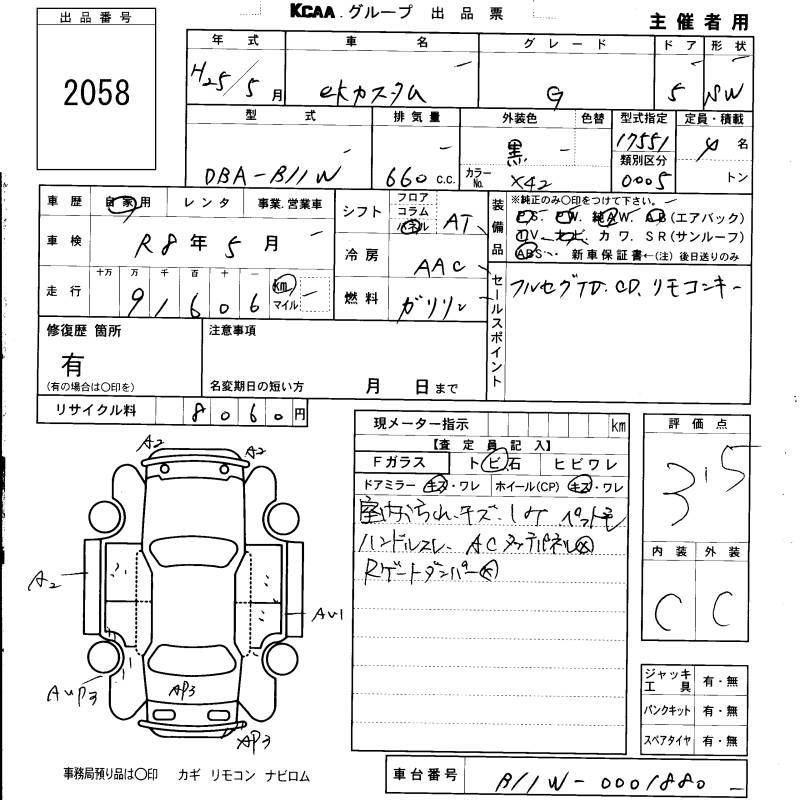 KCAA.グループ 出品票
主催者用
出品番号
2058
年式 車名 グレード ドア 形状
H25/5月 ekカスタム G 5 NW
型式 排気量 外装色 色替 型式指定 定員・積載
DBA-B11W 660 c.c. 黒 17551 4名
カラーNo. X42 類別区分 0005 トン
車歴 自家用 レンタ 事業.営業車
車検 R8年5月
走行 十万 万 千 百 十 一
91606 km マイル
シフト フロア コラム パネル AT
冷房 AAC
燃料 ガソリン
装備品 ※純正のみ○印をつけて下さい。
PS. PW. 純AW. AB(エアバック)
TV. ナビ. カワ. SR(サンルーフ)
ABS. 新車保証書←(注) 後日送りのみ
セールスポイント
フルセグTV. CD. リモコンキー
修復歴 箇所
有
(有の場合は○印を)
注意事項
名変期日の短い方 月 日まで
リサイクル料 8060円
現メーター指示 km
【査定員記入】
Fガラス トビ石 ヒビワレ
ドアミラー キズ・ワレ ホイール(CP) キズ・ワレ
室内かられ.キズ.シミ ペット毛
ハンドルスレ. ACタッチパネル✕
Rゲートダンパー✕
評価点
3.5
内装 外装
C C
ジャッキ工具 有・無
パンクキット 有・無
スペアタイヤ 有・無
A2
A2
A2
AU1
AUP3
AP3
AP3
事務局預り品は○印 カギ リモコン ナビロム
車台番号 B11W-0001880